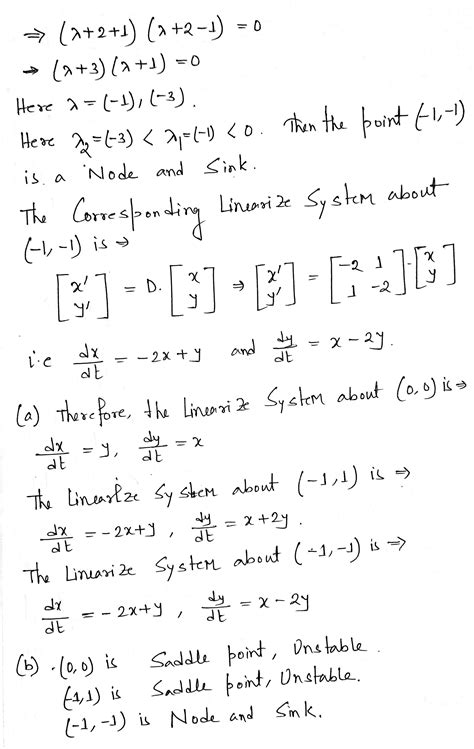 ⇒ (λ+2+1) (λ+2-1) = 0
→ (λ+3) (λ+1) = 0
Here λ = (-1), (-3).
Here λ₂=(-3) < λ₁=(-1) < 0. Then the point (-1,-1)
is a Node and Sink.
The Corresponding Linearize System about
(-1,-1) is ⇒
[x' y'] = D. [x y] ⇒ [x' y'] = [-2 1 1 -2]·[x y]
i.e dx/dt = -2x+y and dy/dt = x-2y.
(a) Therefore, the Linearize System about (0,0) is ⇒
dx/dt = y, dy/dt = x
The Linearize System about (-1,1) is ⇒
dx/dt = -2x+y, dy/dt = x+2y.
The Linearize System about (-1,-1) is ⇒
dx/dt = -2x+y, dy/dt = x-2y
(b) . (0,0) is Saddle point, Unstable.
(-1,1) is Saddle point, Unstable.
(-1,-1) is Node and Sink.